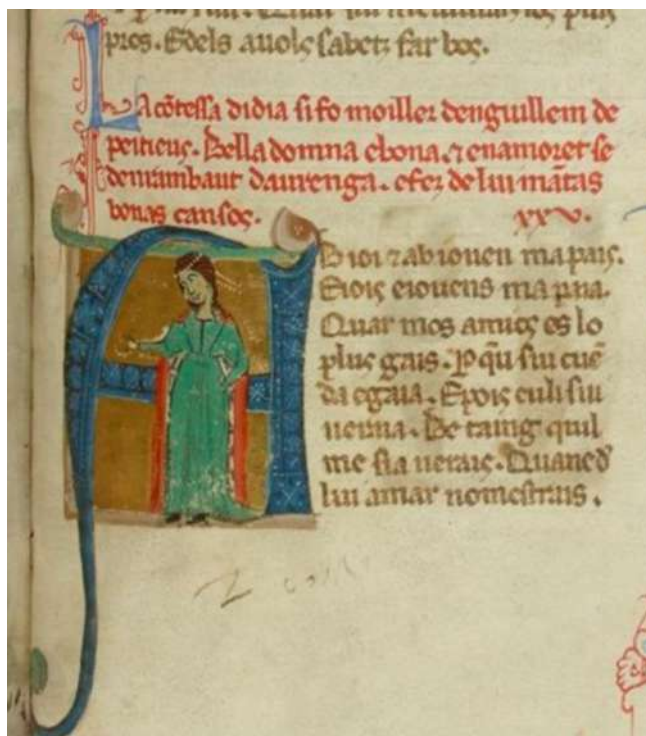 pros. Edels auols sabetz far bos.
La cōtessa didia si fo moiller denguillem de
peitieus. Bella domna ebona. ⁊ enamoret se
denrambaut daurenga. efez de lui mātas
bonas cansos. xxv.
AB ioi ⁊ab iouen mapais.
Eiois eiouens mapna.
Quar mos amics es lo
plus gais. P qu sui cuē
da egaia. Epois euli sui
ueraia. Be taing quil
me sia uerais. Quanc d
lui amar nomestrais.